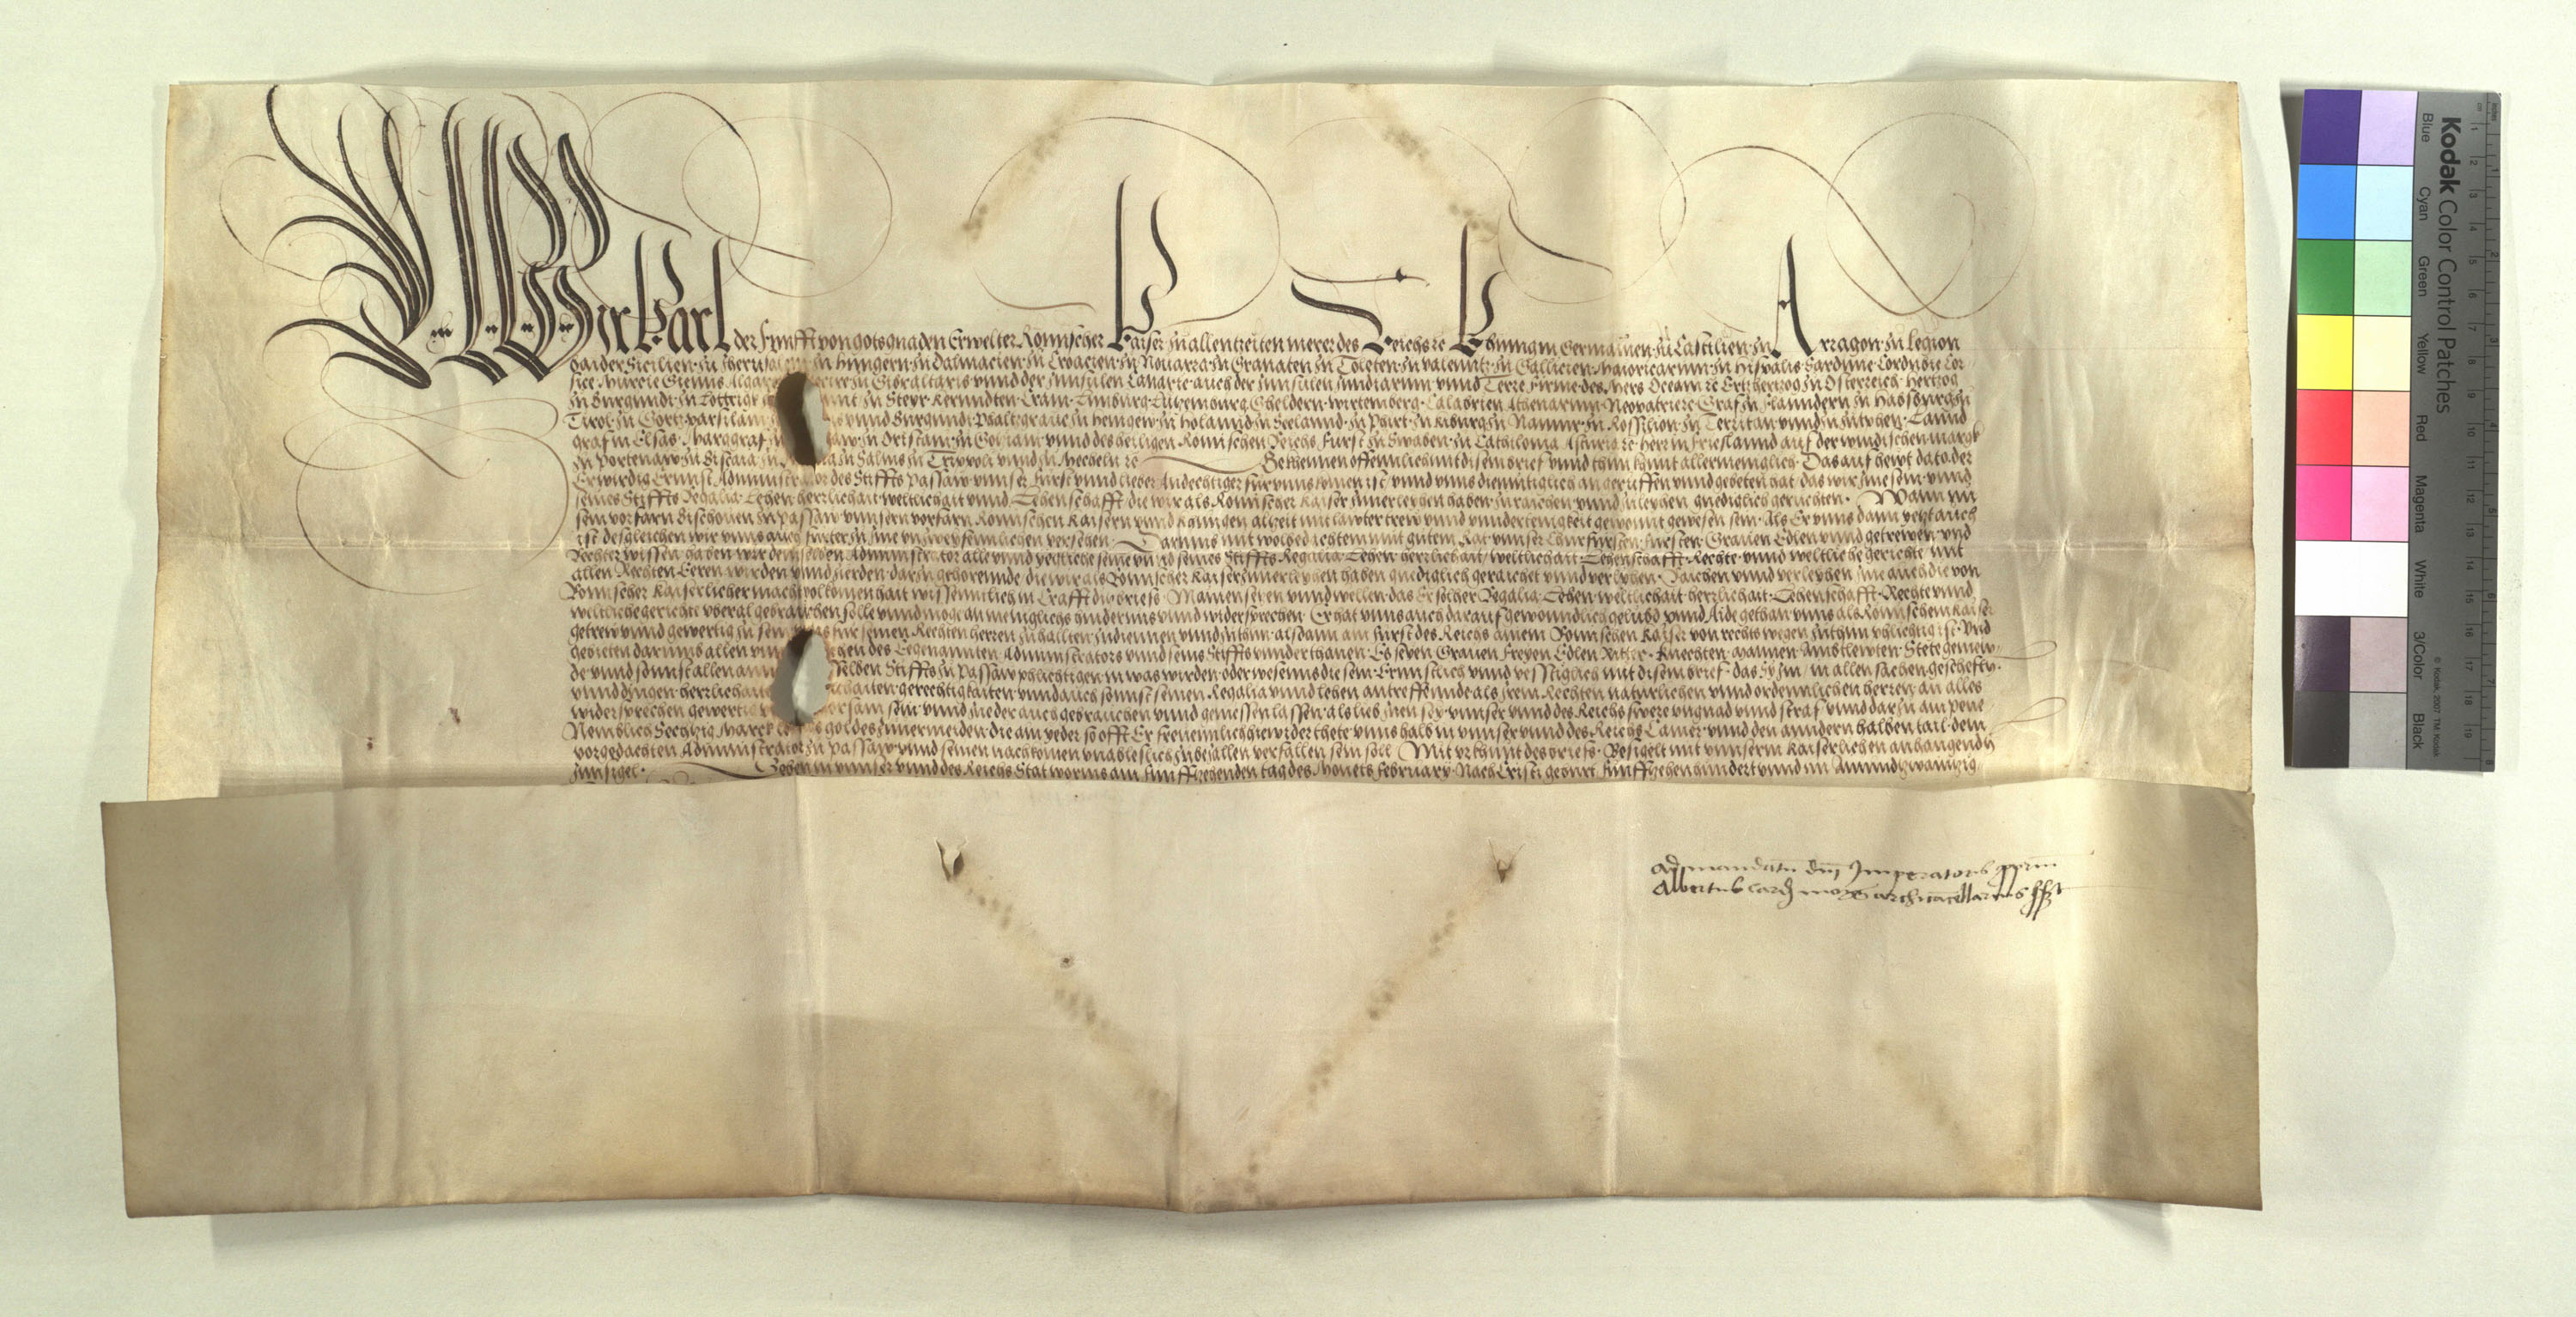 Wir Karl der Funfft von gots gnaden Erwelter Römischer Kaiser zu allen tzeiten merer des Reichs rc Khunig in Germanien zu Castilien zu Arragon zu Legion
baider Sicilien zu Jherusalem zu Hungern zu Dalmacien zu Croacien zu Nouarra zu Granaten zu Toleten zu Valenntz zu Gallicien Maioricarum zu Hispalis Sardinie Cordubie Cor-
sice Murcie Giennis Algar zu Gibraltaris vnnd der Jnnsulen Canarie auch der Jnnsulen Jndiarum vnnd Terre firme des Mers Oceani rc Ertzhertzog zu Osterreich Hertzog
zu Burgundi zu Lottrigk zu Steyr Kernndten Crain Limburg Lutzemburg Gheldern Wirtemberg Calabrien Athenarum Neopatrie rc Graf zu Flanndern zu Habspurg zu
Tirol zu Gortz Parsiloni vnnd Burgundi Phaltzgraue zu Henigew zu Holannd zu Seelannd zu Phirt zu Kiburg zu Namur zu Rossilion zu Territan vnnd zu Zutphen Lannd
graf in Elsas Marggraf zu zu Oristani zu Gociani vnnd des heiligen Römischen Reichs Furst zu Swaben zu Cathilonia Asturia rc Herr in Frieslannd auf der windischen march
zu Portenaw zu Biscaia zu zu Salins zu Trippoli vnnd zu Mecheln rc Bekhennen offennlich mit disem brief vnnd thun khunt allermeniglich Das auf hewt dato der
Erwirdig Ernnst Administrator des Stiffts Passaw vnnser Furst vnnd lieber Andechtiger fur vnns komen ist vnnd vnns diemutiglich angeruffen vnnd gebeten hat das wir Jme sein vnnd
seines Stiffts Regalia Lehen herrlichait weltlichait vnnd Lehenschafft die wir als Römischer Kaiser zuuerleyhen haben zuraichen vnnd zuleyhen gnediglich geruchten Wann nu
sein vorfarn Bischouen zu Passaw vnnsern vorfarn Römischen Kaisern vnnd Kunigen alzeit mit lawter trew vnnd vnnderteinigkeit gewonnt gewesen sein Als Er vnns dann yetzt auch
ist desgleichen wir vnns auch furter zu Jme vnzweyfennlichen versehen Darumb mit wolbedachtem mut gutem Rat vnnser Churfursten Fursten Grauen Edlen vnnd getrewen vnd
Rechter wissen haben wir demselben Administrator alle vnnd yegkliche seine vnnd seines Stiffts Regalia Lehen herrlichait weltlichait Lehenschafft Rechte vnnd weltliche gerichte mit
allen Rechten Eeren wirden vnnd zierden darzu gehorennde die wir als Römischer Kaiser zuuerleyhen haben gnediglich geraichet vnnd verlyhen Raichen vnnd verleyhen Jme auch die von
Römischer Kaiserlicher macht volkomenhait wissenntlich in Crafft dis briefs Mainen setzen vnnd wellen das Er solher Regalia Lehen weltlichait herrlichait Lehenschafft Rechte vnnd
weltliche gerichte vberal gebrauchen solle vnnd mög an meniglichs hindernus vnnd widersprechen Er hat vnns auch darauf gewonndlich gelubd vnnd Aide gethan vnns als Römischem Kaiser
getrew vnnd gewertig zu sein vnns fur seinen Rechten herren zuhallten zudiennen vnnd zuthun als dann ain Furst des Reichs ainem Römischen Kaiser von rechts wegen zuthun phlichtig ist Vnd
gebieten darumb allen vnnd des Eegenannten Administrators vnnd seins Stiffts vnnderthanen Es seyen Grauen Freyen Edlen Ritter Knechten Mannen Ambtlewten Stete gemein-
de vnnd sonnst allen anndern desselben Stiffts zu Passaw phlichtigen in was wirden oder wesenns die sein Ernnstlich vnnd vesstiglich mit disem brief das sy im in allen sachen gescheftn
vnnd dingen herrlichait gerechtigkaiten vnnd auch sonnst seinen Regalia vnnd Lehen antreffennde als jrem Rechten naturlichen vnnd ordennlichen herren an alles
widersprechen gewertig gehorsam sein vnnd Jne der auch gebrauchen vnnd geniessen lassen als lieb Jnen sey vnnser vnnd des Reichs swere vngnad vnnd straf vnnd darzu ain pene
Nemblich Sechtzig Marck lottigs goldes zuuermeiden die ain yeder so offt Er freuennlich hiewider thete vnns halb in vnnser vnnd des Reichs Camer vnnd den anndern halben tail dem
vorgedachten Administrator zu Passaw vnnd seinen nachkomen vnableslich zubetzallen verfallen sein soll Mit vrkhunt des briefs Besigelt mit vnnserm Kaiserlichen anhangendn
Jnnsigel Geben in vnnser vnnd des Reichs Stat Worms am funffzehenden tag des Monets February Nach Cristi geburt funffzehenhundert vnnd im Ainundzwaintzig-
Ad mandatu dni Jmperatoris pprm
Albertus card mog archicacellarius sst